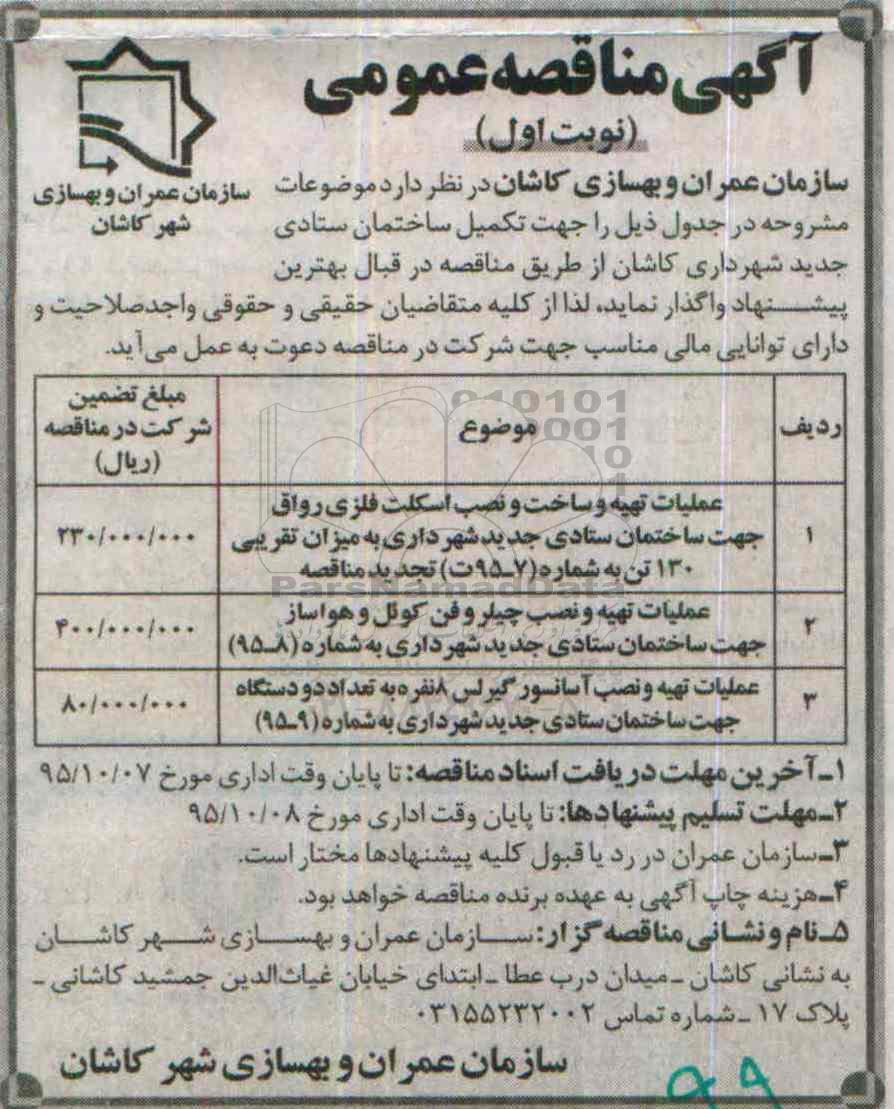 آگهی مناقصه عمومی
(نوبت اول)
سازمان عمران و بهسازی
شهر کاشان
سازمان عمران و بهسازی کاشان در نظر دارد موضوعات
مشروحه در جدول ذیل را جهت تکمیل ساختمان ستادی
جدید شهرداری کاشان از طریق مناقصه در قبال بهترین
پیشنهاد واگذار نماید، لذا از کلیه متقاضیان حقیقی و حقوقی واجدصلاحیت و
دارای توانایی مالی مناسب جهت شرکت در مناقصه دعوت به عمل می‌آید.
ردیف موضوع مبلغ تضمین شرکت در مناقصه (ریال)
۱ عملیات تهیه و ساخت و نصب اسکلت فلزی رواق
جهت ساختمان ستادی جدید شهرداری به میزان تقریبی ۲۳۰/۰۰۰/۰۰۰
۱۳۰ تن به شماره (۷ـ۹۵ت) تجدید مناقصه
۲ عملیات تهیه و نصب چیلر و فن کوئل و هواساز ۴۰۰/۰۰۰/۰۰۰
جهت ساختمان ستادی جدید شهرداری به شماره (۸ـ۹۵)
۳ عملیات تهیه و نصب آسانسور گیرلس ۸نفره به تعداد دو دستگاه ۸۰/۰۰۰/۰۰۰
جهت ساختمان ستادی جدید شهرداری به شماره (۹ـ۹۵)
۱ـ آخرین مهلت دریافت اسناد مناقصه: تا پایان وقت اداری مورخ ۹۵/۱۰/۰۷
۲ـ مهلت تسلیم پیشنهادها: تا پایان وقت اداری مورخ ۹۵/۱۰/۰۸
۳ـ سازمان عمران در رد یا قبول کلیه پیشنهادها مختار است.
۴ـ هزینه چاپ آگهی به عهده برنده مناقصه خواهد بود.
۵ـ نام و نشانی مناقصه گزار: سازمان عمران و بهسازی شهر کاشان
به نشانی کاشان ـ میدان درب عطا ـ ابتدای خیابان غیاث‌الدین جمشید کاشانی ـ
پلاک ۱۷ ـ شماره تماس ۰۳۱۵۵۲۳۲۰۰۲
سازمان عمران و بهسازی شهر کاشان
۹۹
ParsNamadData